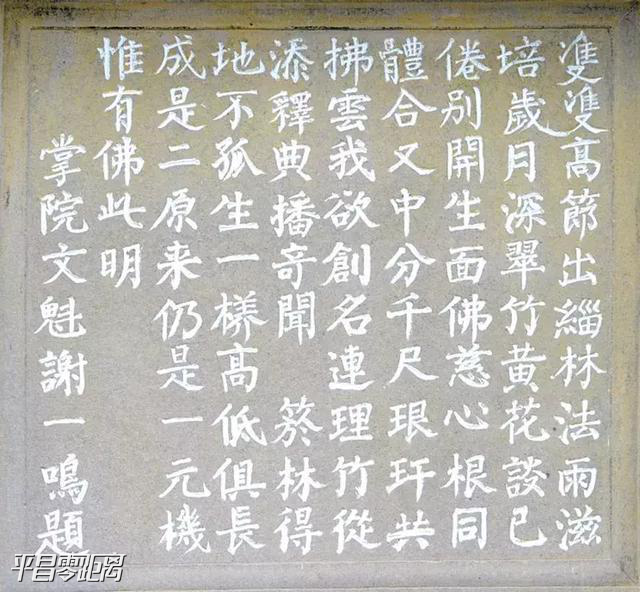 雙雙高節出緇林法雨滋
培歲月深翠竹黃花談已
倦別開生面佛慈心根同
體合又中分千尺琅玕共
拂雲我欲創名連理竹從
添釋典播奇聞 菸林得
地不孤生一樣高低俱長
成是二原来仍是一元機
惟有佛此明
掌院文魁謝一鳴題
平昌零距离